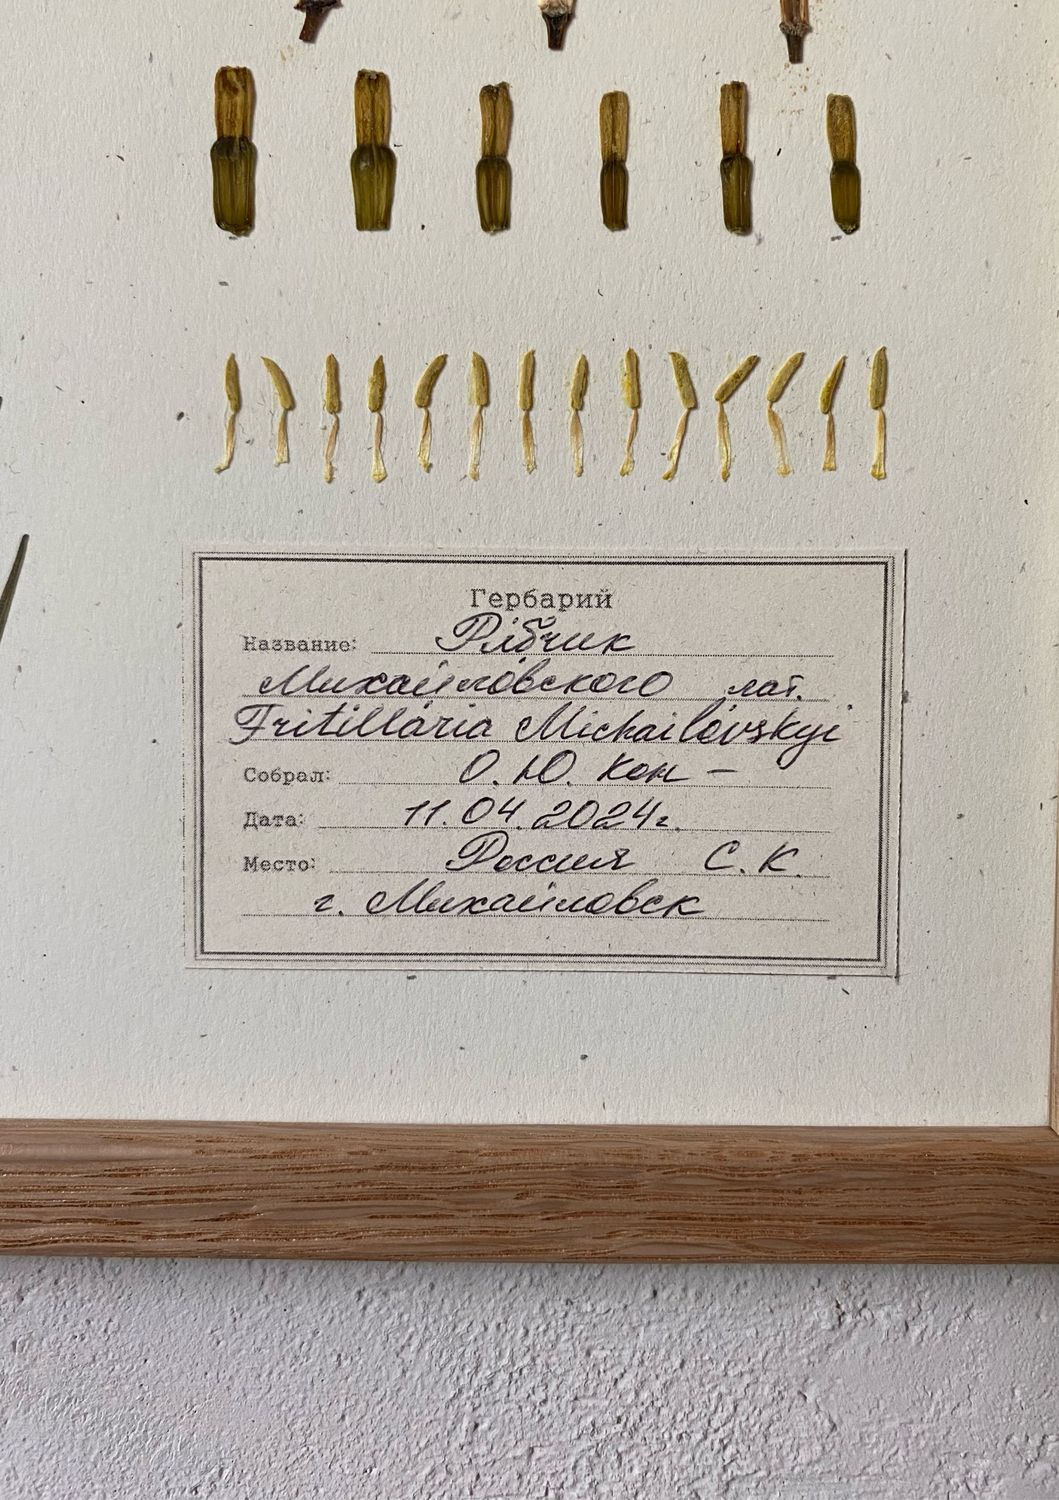 Гербарий
Название: Рябчик
Михайловского лат.
Fritillária Michailóvskyi
Собрал: О. Ю. Кон –
Дата: 11.04.2024г.
Место: Россия С. К.
г. Михайловск